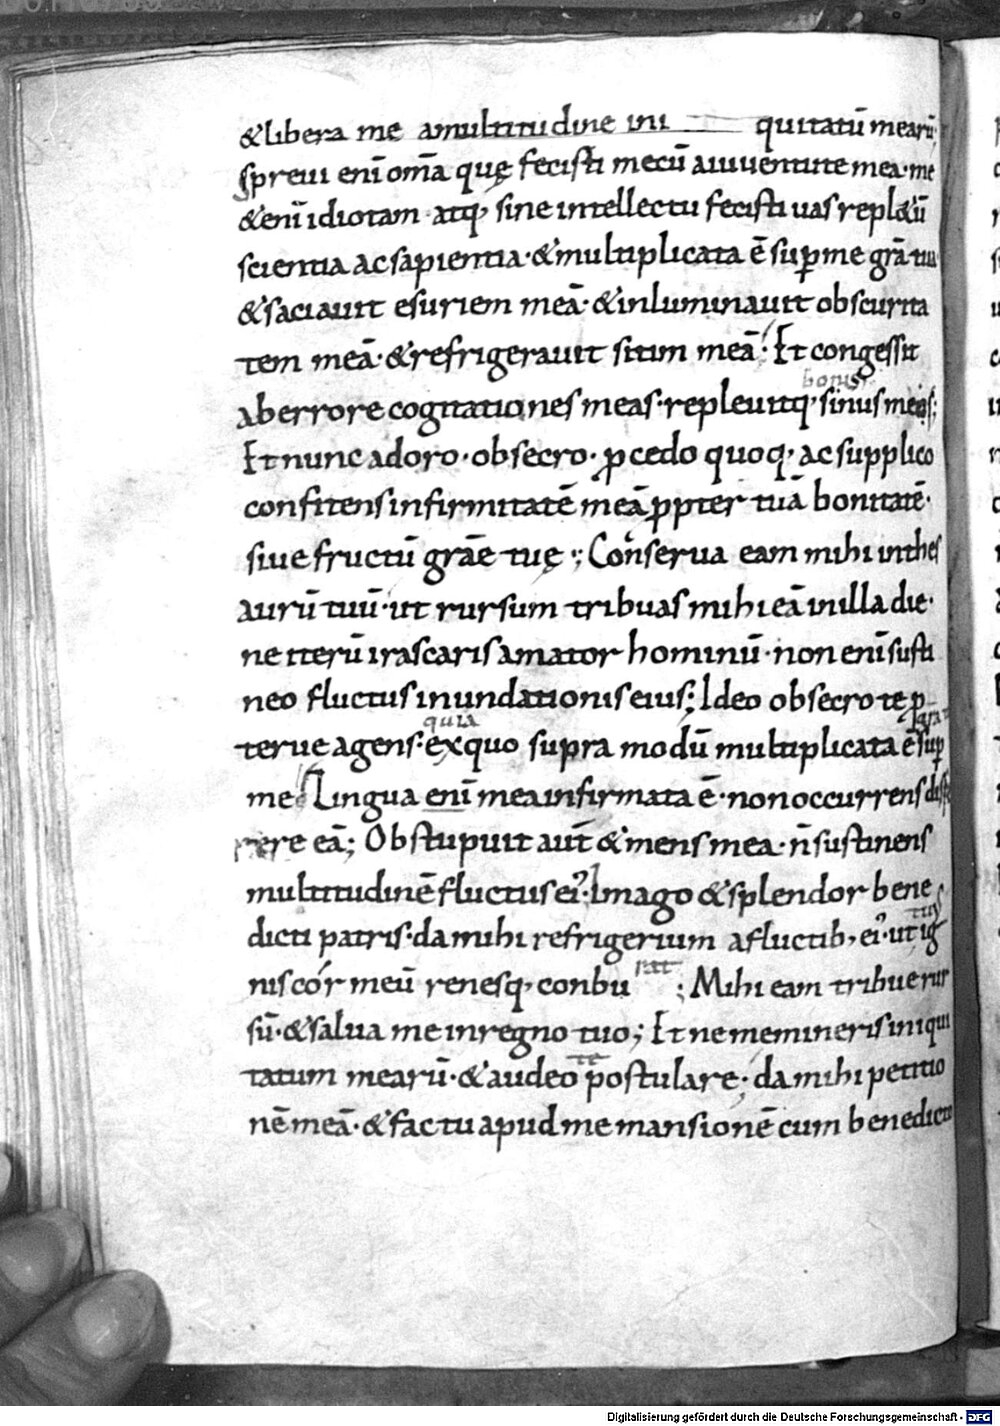 &libera me amultitudine ini quitatū mearū;
sprevi enī om̄a quę fecisti mecū aiuventute mea· me
&enī idiotam atq; sine intellectu fecisti uas repl&ū
scientia ac sapientia· &multiplicata ē sup me grā tua
&saciauit esuriem meā· &inluminauit obscurita
tem meā· &refrigerauit sitim meā· Et congessit
bonis
ab errore cogitationes meas· repleuitq; sinus meos;
Et nunc adoro· obsecro· pcedo quoq; ac supplico
confitens infirmitatē meā ppter tuā bonitatē·
siue fructū grāe tuę; Conserua eam mihi inthes
aurū tuū· ut rursum tribuas mihi eā inilla die·
ne iterū irascaris amator hominū· non enī susti
neo fluctus inundationis eius; Ideo obsecro te p
quia gra
terue agens· exquo supra modū multiplicata ē sup
me Lingua enī mea infirmata ē· non occurrens
rere eā; Obstupuit aut̄ &mens mea· n̄ sustinens
multitudinē fluctus ei'· Imago &splendor bene
dicti patris· da mihi refrigerium afluctib; ei'· ut ig
tuus
nis cor meū renesq; conbu ;Mihi eam tribue rur
sū· &salua me inregno tuo; Et ne memineris iniqui
te
tatum mearū· &audeo postulare· da mihi petitio
nē meā· &fac tu apud me mansionē cum benedicto
Digitalisierung gefördert durch die Deutsche Forschungsgemeinschaft - DFG